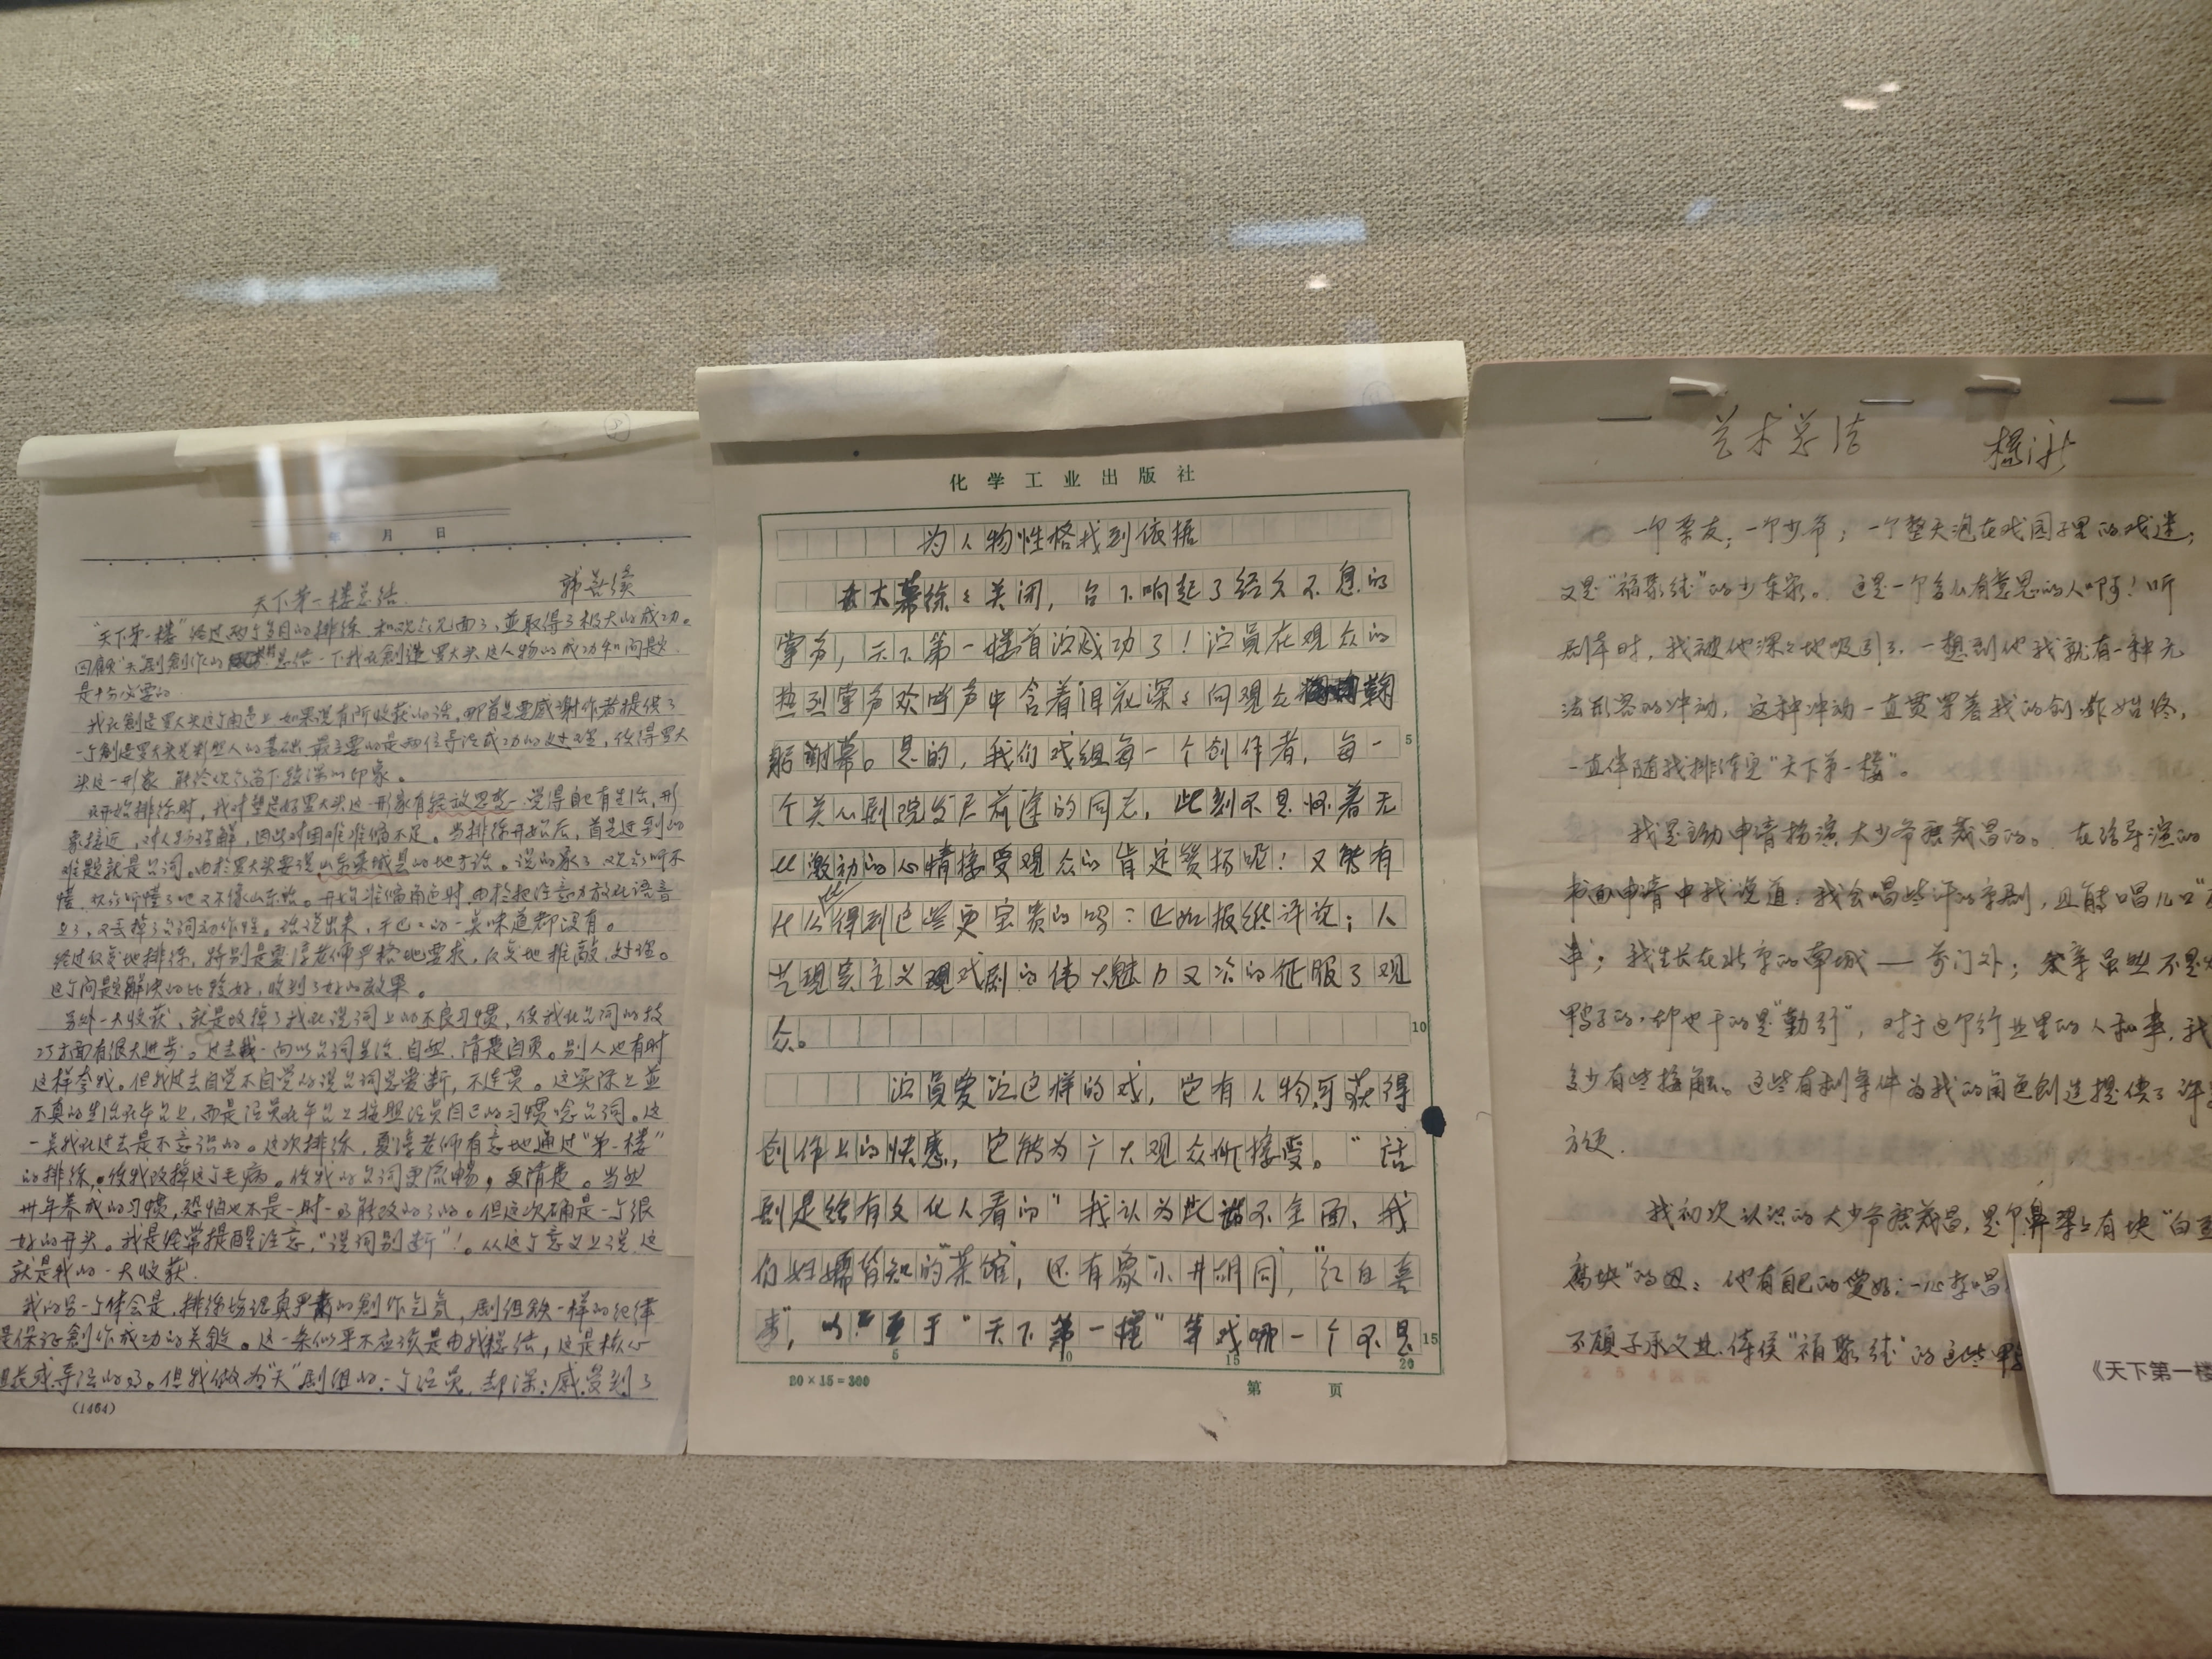 年 月 日
天下第一楼总结 韩善续
"天下第一楼"经过两个多月的排练 和观众见面了,並取得了极大的成功。
回顾"天"剧創作的总结一下我在創造罗大头这人物的成功和问题
是十分必要的
我在創造罗大头这个角色上 如果说有所收获的话,那首先要感谢作者提供了
一个創造罗大头类型人的基础 最主要的是两位导演成功的处理,使得罗大
头这一形象 能给观众留下较深的印象。
开始排练时,我对塑造好罗大头这一形象有轻敌思想 觉得自己有生活,形
象接近,对人物理解,因此对困难准俻不足。当排练开始后,首先遇到的
难题就是台词。由于罗大头要说山东荣城县的地方话。说的象了 观众听不
懂,观众听懂了吧又不像山东话。开始准俻角色时,由于把注意力放在语音
上了,又丢掉了台词动作性。
经过反复地排练,特别是夏淳老师严格地要求,反复地推敲,处理。
这个问题解决的比较好,收到了好的效果。
另外一大收获,就是改掉了我在说词上的不良习惯,使我在台词的技
巧方面有很大进步。过去我一向以台词生活 自然 清楚自负。别人也有时
这样夸我。但我过去自觉不自觉的说台词总爱断,不连贯。这实际上並
不真的生活在午台上,而是演员在午台上按照演员自己的习惯唸台词。这
一点我在过去是不意识的。这次排练,夏淳老师有意地通过"第一楼"
的排练,使我改掉这个毛病。使我的台词更流畅,更清楚。当然
卅年养成的习惯,恐怕也不是一时一日能改的了的。但这次确是一个很
好的开头。我是经常提醒注意,"说词别断"!。从这个意义上说 这
就是我的一大收获.
我的另一个体会是,排练场认真严肃的創作气氛,剧组铁一样的纪律
是保证創作成功的关键。这一条似乎不应该是由我总结,这是核心
组长或导演的事。但我做为"天"剧组的一个演员 却深深感受到了
(1464)
化学工业出版社
为人物性格找到依据
大幕徐々关闭,台下响起了经久不息的
掌声,天下第一楼首演成功了!演员在观众的
热烈掌声欢呼声中含着泪花深々向观众鞠
躬谢幕。是的,我们戏组每一个创作者,每一
个关心剧院发展前途的同志,此刻不是怀着无
比激动的心情接受观众的肯定赞扬呢!又能有
什么得到这些更宝贵的吗?正如报纸评论;人
艺现实主义戏剧的伟大魅力又一次的征服了观
众。
演员爱演这样的戏,它有人物可获得
创作上的快感,它能为广大观众所接受。"话
剧是给有文化人看的"我认为此话不全面,我
们妇孺皆知的"茶馆",还有象"小井胡同","红白喜
事",以至于"天下第一楼"等戏哪一个不是
5
10
15
5 10 15 20
20×15=300 第 页
艺术总结 杨立新
一个票友;一个少爷;一个整天泡在戏园子里的戏迷;
又是"福聚德"的少东家。这是一个多么有意思的人啊!听
剧本时,我被他深々地吸引了。一想到他我就有一种无
法形容的冲动,这种冲动一直贯穿着我的创作始终,
一直伴随我排练完"天下第一楼"。
我是主动申请扮演大少爷唐茂昌的。在给导演的
书面申请中我说道:我会唱些许的京剧,且能唱几口"
事;我生长在北京的南城——前门外;父亲虽然不是
鸭子的,却也干的是"勤行",对于这个行业里的人和事,我
多少有些接触。这些有利条件为我的角色创造提供了许多
方便.
我初次认识的大少爷唐茂昌,是个鼻梁上有块"白豆
腐块"的丑;他有自己的爱好;一心想唱
不愿子承父业,侍侯"福聚德"的这些鸭
《天下第一楼